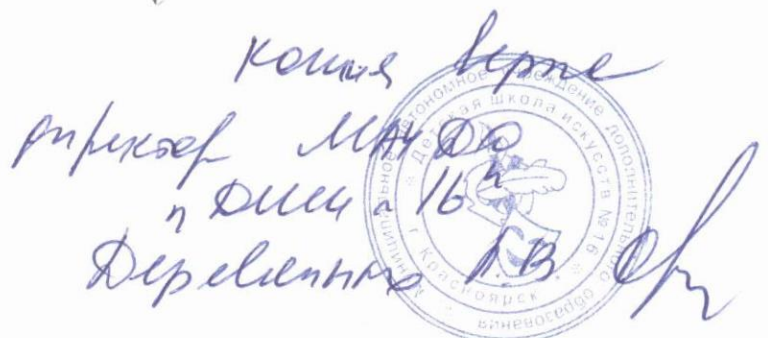 копия верна
директор МАУ ДО
"ДШИ - 16"
Муниципальное автономное учреждение дополнительного образования
"Детская школа искусств № 16"
г. Красноярск